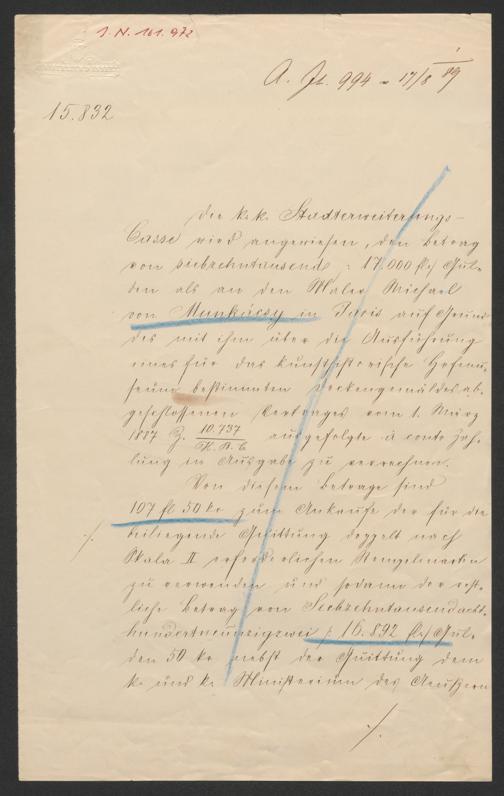 I. N. 161.972
A. Z. 994 - 17/8 89
15.832
Die k. k. Stadterweiterungs-
Casse wird angewiesen, den Betrag
von siebzehntausend /: 17.000 fl :/ Gul-
den als an den Maler Michael
von Munkácsy in Paris auf Grund
des mit ihm über die Ausführung
eines für das kunsthistorische Hofmu-
seum bestimmten Deckengemäldes ab-
geschlossenen Vertrages vom 1. März
1887 Z. 10.737 / H. B. C. ausgefolgte à conto Zah-
lung in Ausgabe zu verrechnen.
Von diesem Betrage sind
107 fl 50 kr zum Ankaufe der für die
beiliegende Quittung doppelt nach
Skala II erforderlichen Stempelmarken
zu verwenden und sodann der rest-
liche Betrag von Sechzehntausendacht-
hundertneunzigzwei /: 16.892 fl :/ Gul-
den 50 kr nebst der Quittung dem
k. und k. Ministerium des Aeußern
./.